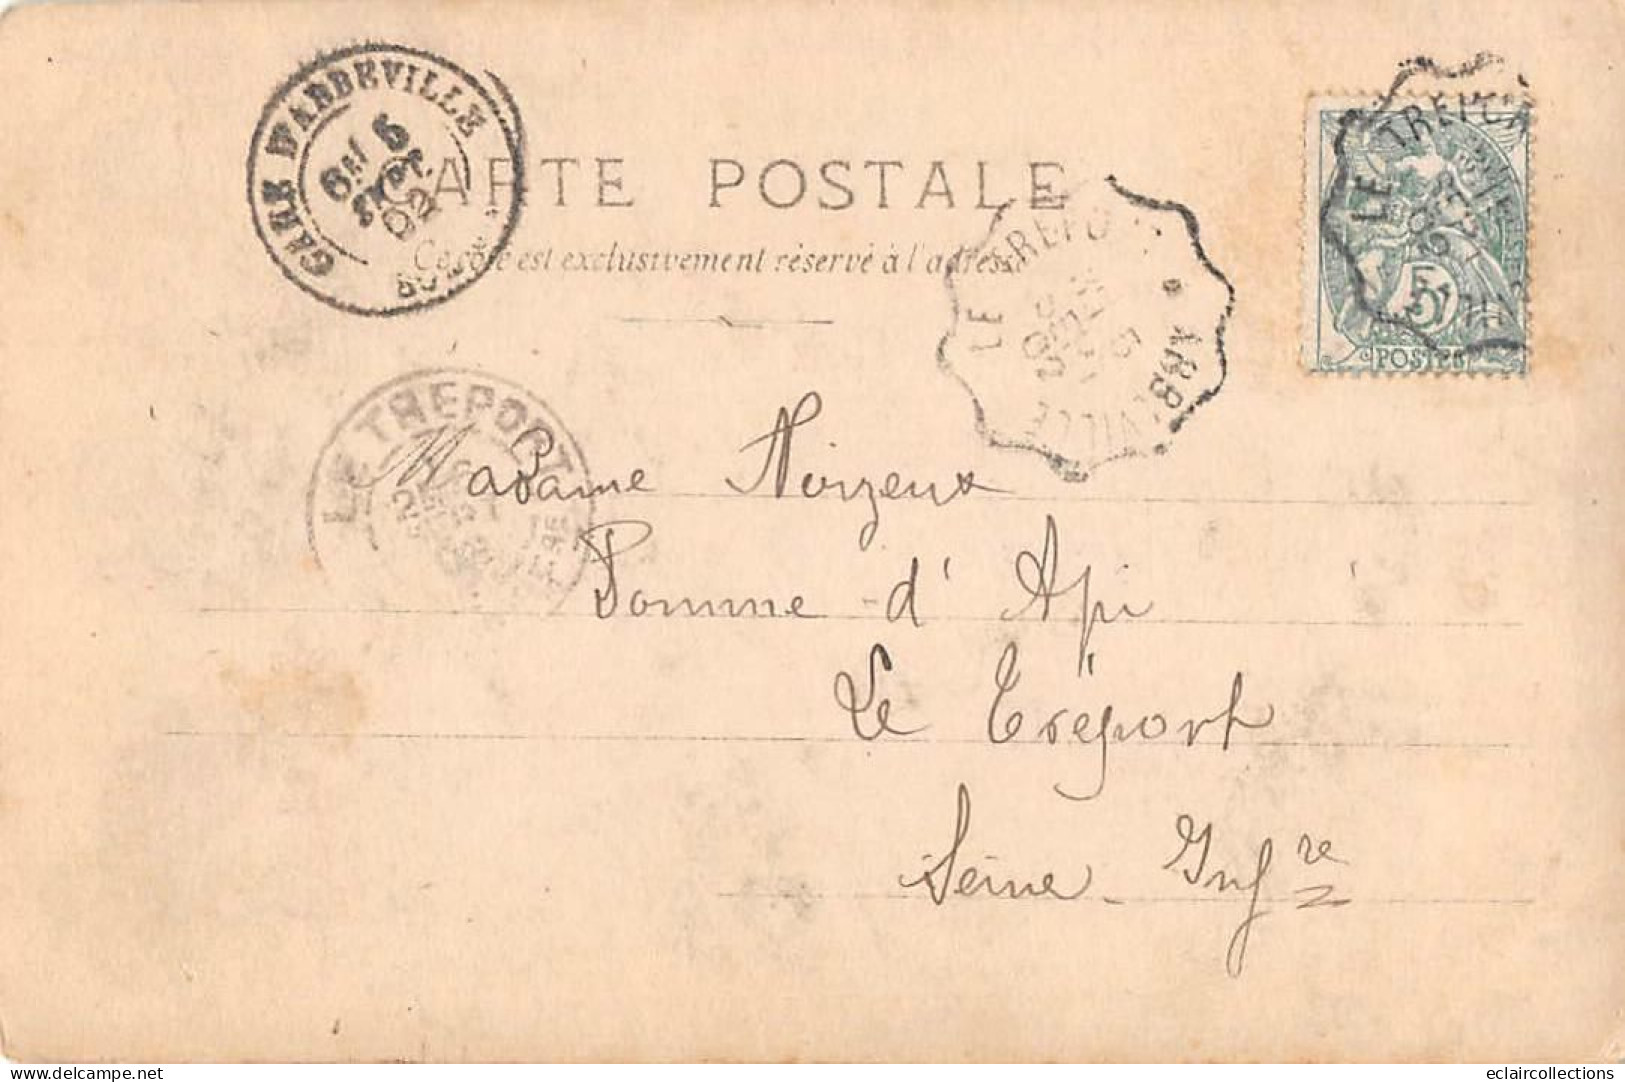 GARE D'ABBEVILLE
5
02
CARTE POSTALE
Ce côté est exclusivement réservé à l'adresse
LE TREPORT
ABBEVILLE
LE TREPORT
5
POSTES
LE TREPORT
Madame Noizeux
Pomme d'Api
Le Tréport
Seine Infre
delcampe.net
eclaircollections